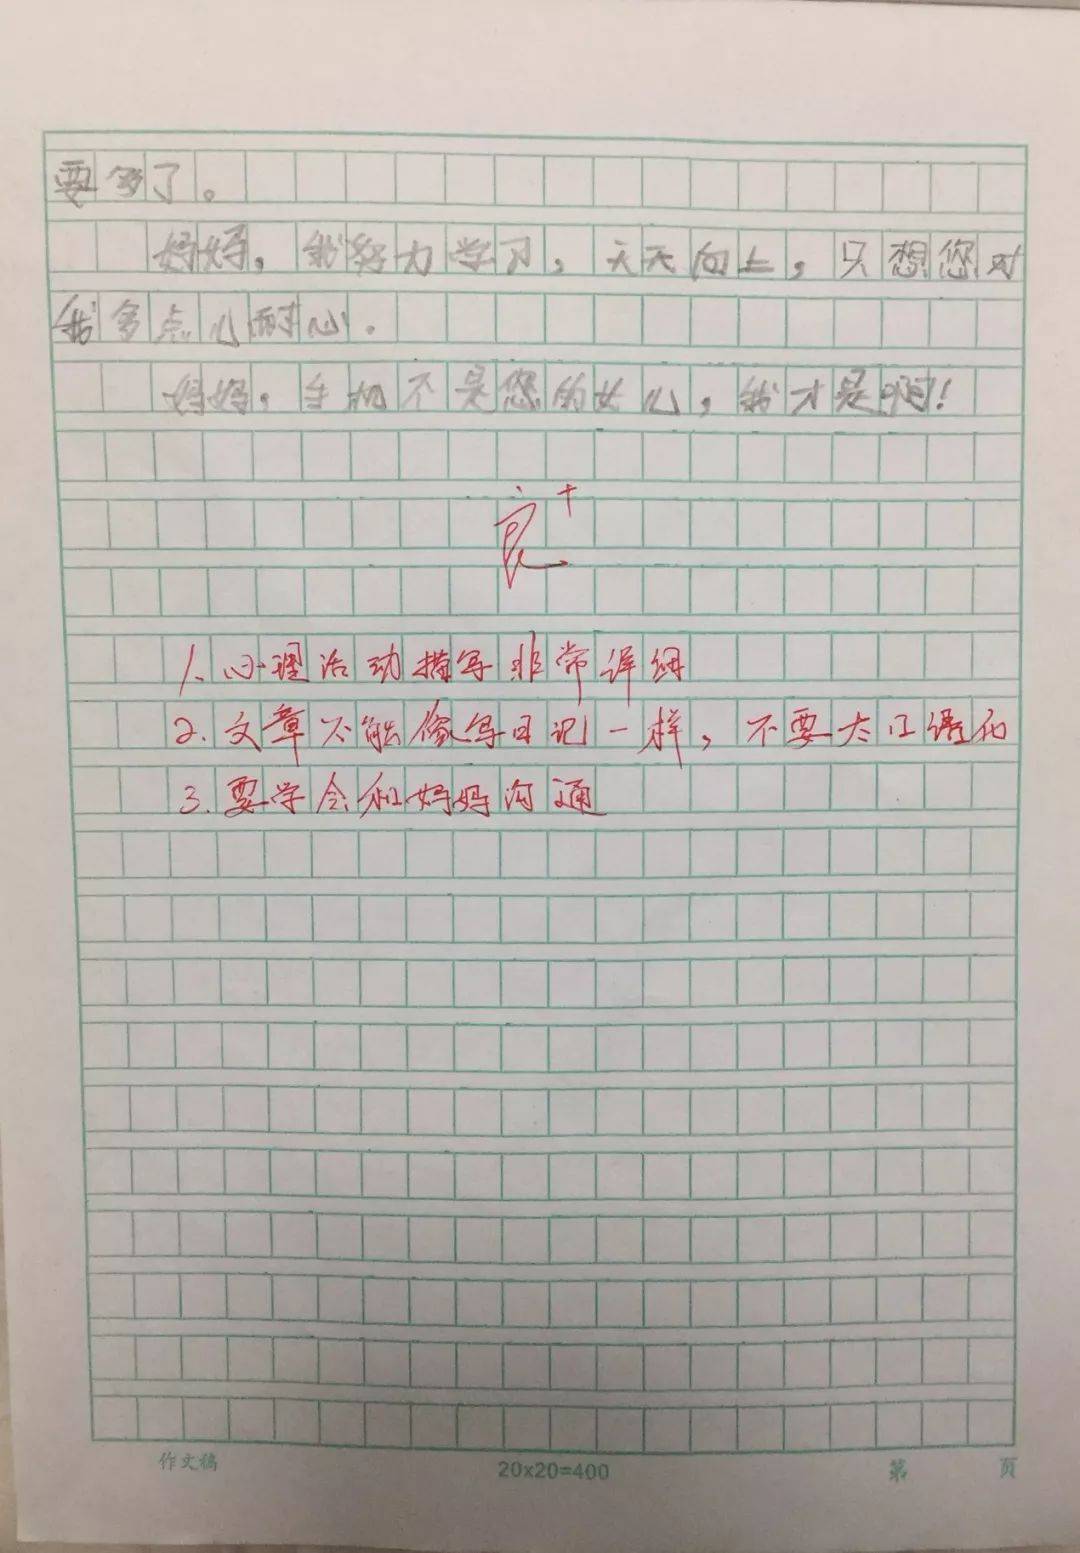 要多了。
妈妈，我努力学习，天天向上，只想您对
我多点儿耐心.
妈妈，手机不是您的女儿，我才是啊！
良+
1.心理活动描写非常详细
2.文章不能像写日记一样，不要太口语化
3.要学会和妈妈沟通
作文稿 20x20=400 第 页